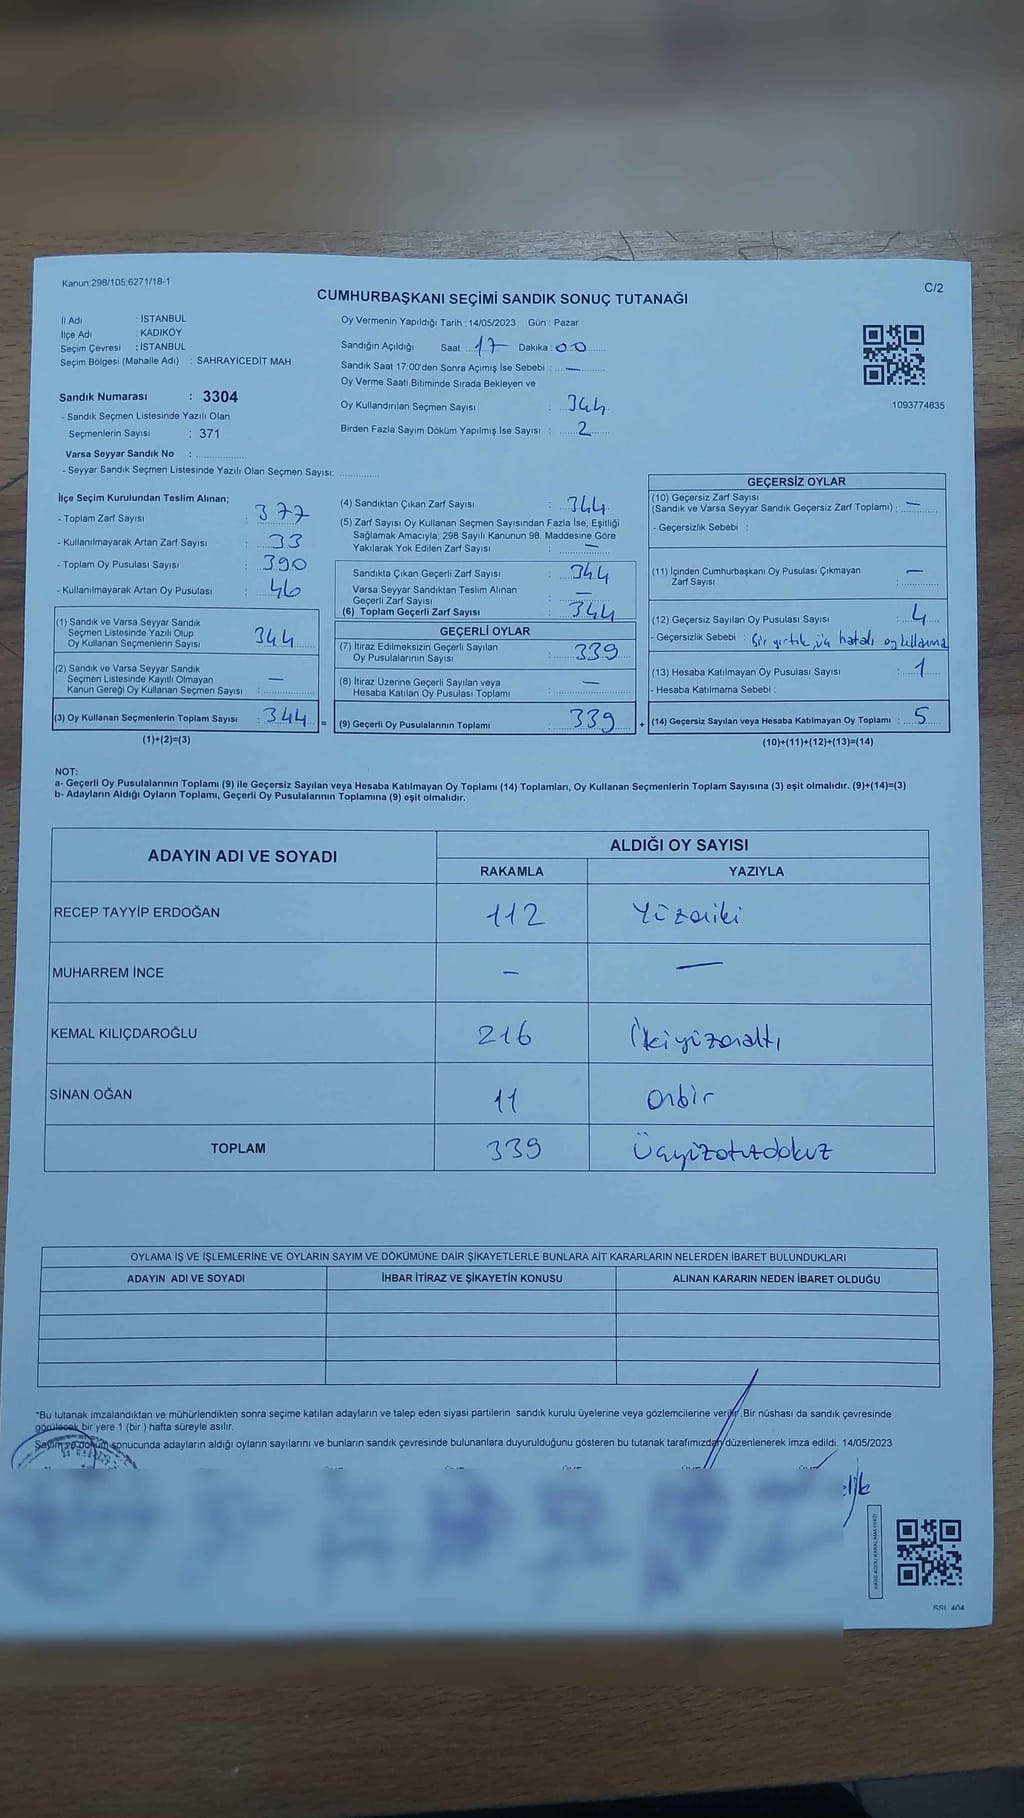 Kanun:298/105;6271/18-1
C/2
CUMHURBAŞKANI SEÇİMİ SANDIK SONUÇ TUTANAĞI
İl Adı : İSTANBUL
İlçe Adı : KADIKÖY
Seçim Çevresi : İSTANBUL
Seçim Bölgesi (Mahalle Adı) : SAHRAYICEDİT MAH.
Sandık Numarası : 3304
- Sandık Seçmen Listesinde Yazılı Olan
Seçmenlerin Sayısı : 371
Varsa Seyyar Sandık No :
- Seyyar Sandık Seçmen Listesinde Yazılı Olan Seçmen Sayısı:
Oy Vermenin Yapıldığı Tarih :14/05/2023 Gün : Pazar
Sandığın Açıldığı Saat : 17 Dakika : 00
Sandık Saat 17:00'den Sonra Açımış İse Sebebi : —
Oy Verme Saati Bitiminde Sırada Bekleyen ve
Oy Kullandırılan Seçmen Sayısı : 344
Birden Fazla Sayım Döküm Yapılmış İse Sayısı : 2
1093774835
İlçe Seçim Kurulundan Teslim Alınan;
- Toplam Zarf Sayısı : 377
- Kullanılmayarak Artan Zarf Sayısı : 33
- Toplam Oy Pusulası Sayısı : 390
- Kullanılmayarak Artan Oy Pusulası : 46
(1) Sandık ve Varsa Seyyar Sandık
Seçmen Listesinde Yazılı Olup
Oy Kullanan Seçmenlerin Sayısı : 344
(2) Sandık ve Varsa Seyyar Sandık
Seçmen Listesinde Kayıtlı Olmayan
Kanun Gereği Oy Kullanan Seçmen Sayısı : —
(3) Oy Kullanan Seçmenlerin Toplam Sayısı : 344 =
(1)+(2)=(3)
(4) Sandıktan Çıkan Zarf Sayısı : 344
(5) Zarf Sayısı Oy Kullanan Seçmen Sayısından Fazla İse, Eşitliği
Sağlamak Amacıyla, 298 Sayılı Kanunun 98. Maddesine Göre
Yakılarak Yok Edilen Zarf Sayısı : —
Sandıkta Çıkan Geçerli Zarf Sayısı : 344
Varsa Seyyar Sandıktan Teslim Alınan
Geçerli Zarf Sayısı : —
(6) Toplam Geçerli Zarf Sayısı : 344
GEÇERLİ OYLAR
(7) İtiraz Edilmeksizin Geçerli Sayılan
Oy Pusulalarının Sayısı : 339
(8) İtiraz Üzerine Geçerli Sayılan veya
Hesaba Katılan Oy Pusulası Toplamı : —
(9) Geçerli Oy Pusulalarının Toplamı : 339 +
GEÇERSİZ OYLAR
(10) Geçersiz Zarf Sayısı
(Sandık ve Varsa Seyyar Sandık Geçersiz Zarf Toplamı) : —
- Geçersizlik Sebebi :
(11) İçinden Cumhurbaşkanı Oy Pusulası Çıkmayan
Zarf Sayısı : —
(12) Geçersiz Sayılan Oy Pusulası Sayısı : 4
- Geçersizlik Sebebi : bir yırtık, üç hatalı oy kullanma
(13) Hesaba Katılmayan Oy Pusulası Sayısı : 1
- Hesaba Katılmama Sebebi :
(14) Geçersiz Sayılan veya Hesaba Katılmayan Oy Toplamı : 5
(10)+(11)+(12)+(13)=(14)
NOT:
a- Geçerli Oy Pusulalarının Toplamı (9) ile Geçersiz Sayılan veya Hesaba Katılmayan Oy Toplamı (14) Toplamları, Oy Kullanan Seçmenlerin Toplam Sayısına (3) eşit olmalıdır. (9)+(14)=(3)
b- Adayların Aldığı Oyların Toplamı, Geçerli Oy Pusulalarının Toplamına (9) eşit olmalıdır.
ADAYIN ADI VE SOYADI
ALDIĞI OY SAYISI
RAKAMLA YAZIYLA
RECEP TAYYİP ERDOĞAN 112 Yüzoniki
MUHARREM İNCE — —
KEMAL KILIÇDAROĞLU 216 İkiyüzonaltı
SİNAN OĞAN 11 Onbir
TOPLAM 339 Üçyüzotuzdokuz
OYLAMA İŞ VE İŞLEMLERİNE VE OYLARIN SAYIM VE DÖKÜMÜNE DAİR ŞİKAYETLERLE BUNLARA AİT KARARLARIN NELERDEN İBARET BULUNDUKLARI
ADAYIN ADI VE SOYADI İHBAR İTİRAZ VE ŞİKAYETİN KONUSU ALINAN KARARIN NEDEN İBARET OLDUĞU
*Bu tutanak imzalandıktan ve mühürlendikten sonra seçime katılan adayların ve talep eden siyasi partilerin sandık kurulu üyelerine veya gözlemcilerine verilir. Bir nüshası da sandık çevresinde
görülecek bir yere 1 (bir ) hafta süreyle asılır.
Sayım ve döküm sonucunda adayların aldığı oyların sayılarını ve bunların sandık çevresinde bulunanlara duyurulduğunu gösteren bu tutanak tarafımızdan düzenlenerek imza edildi. 14/05/2023